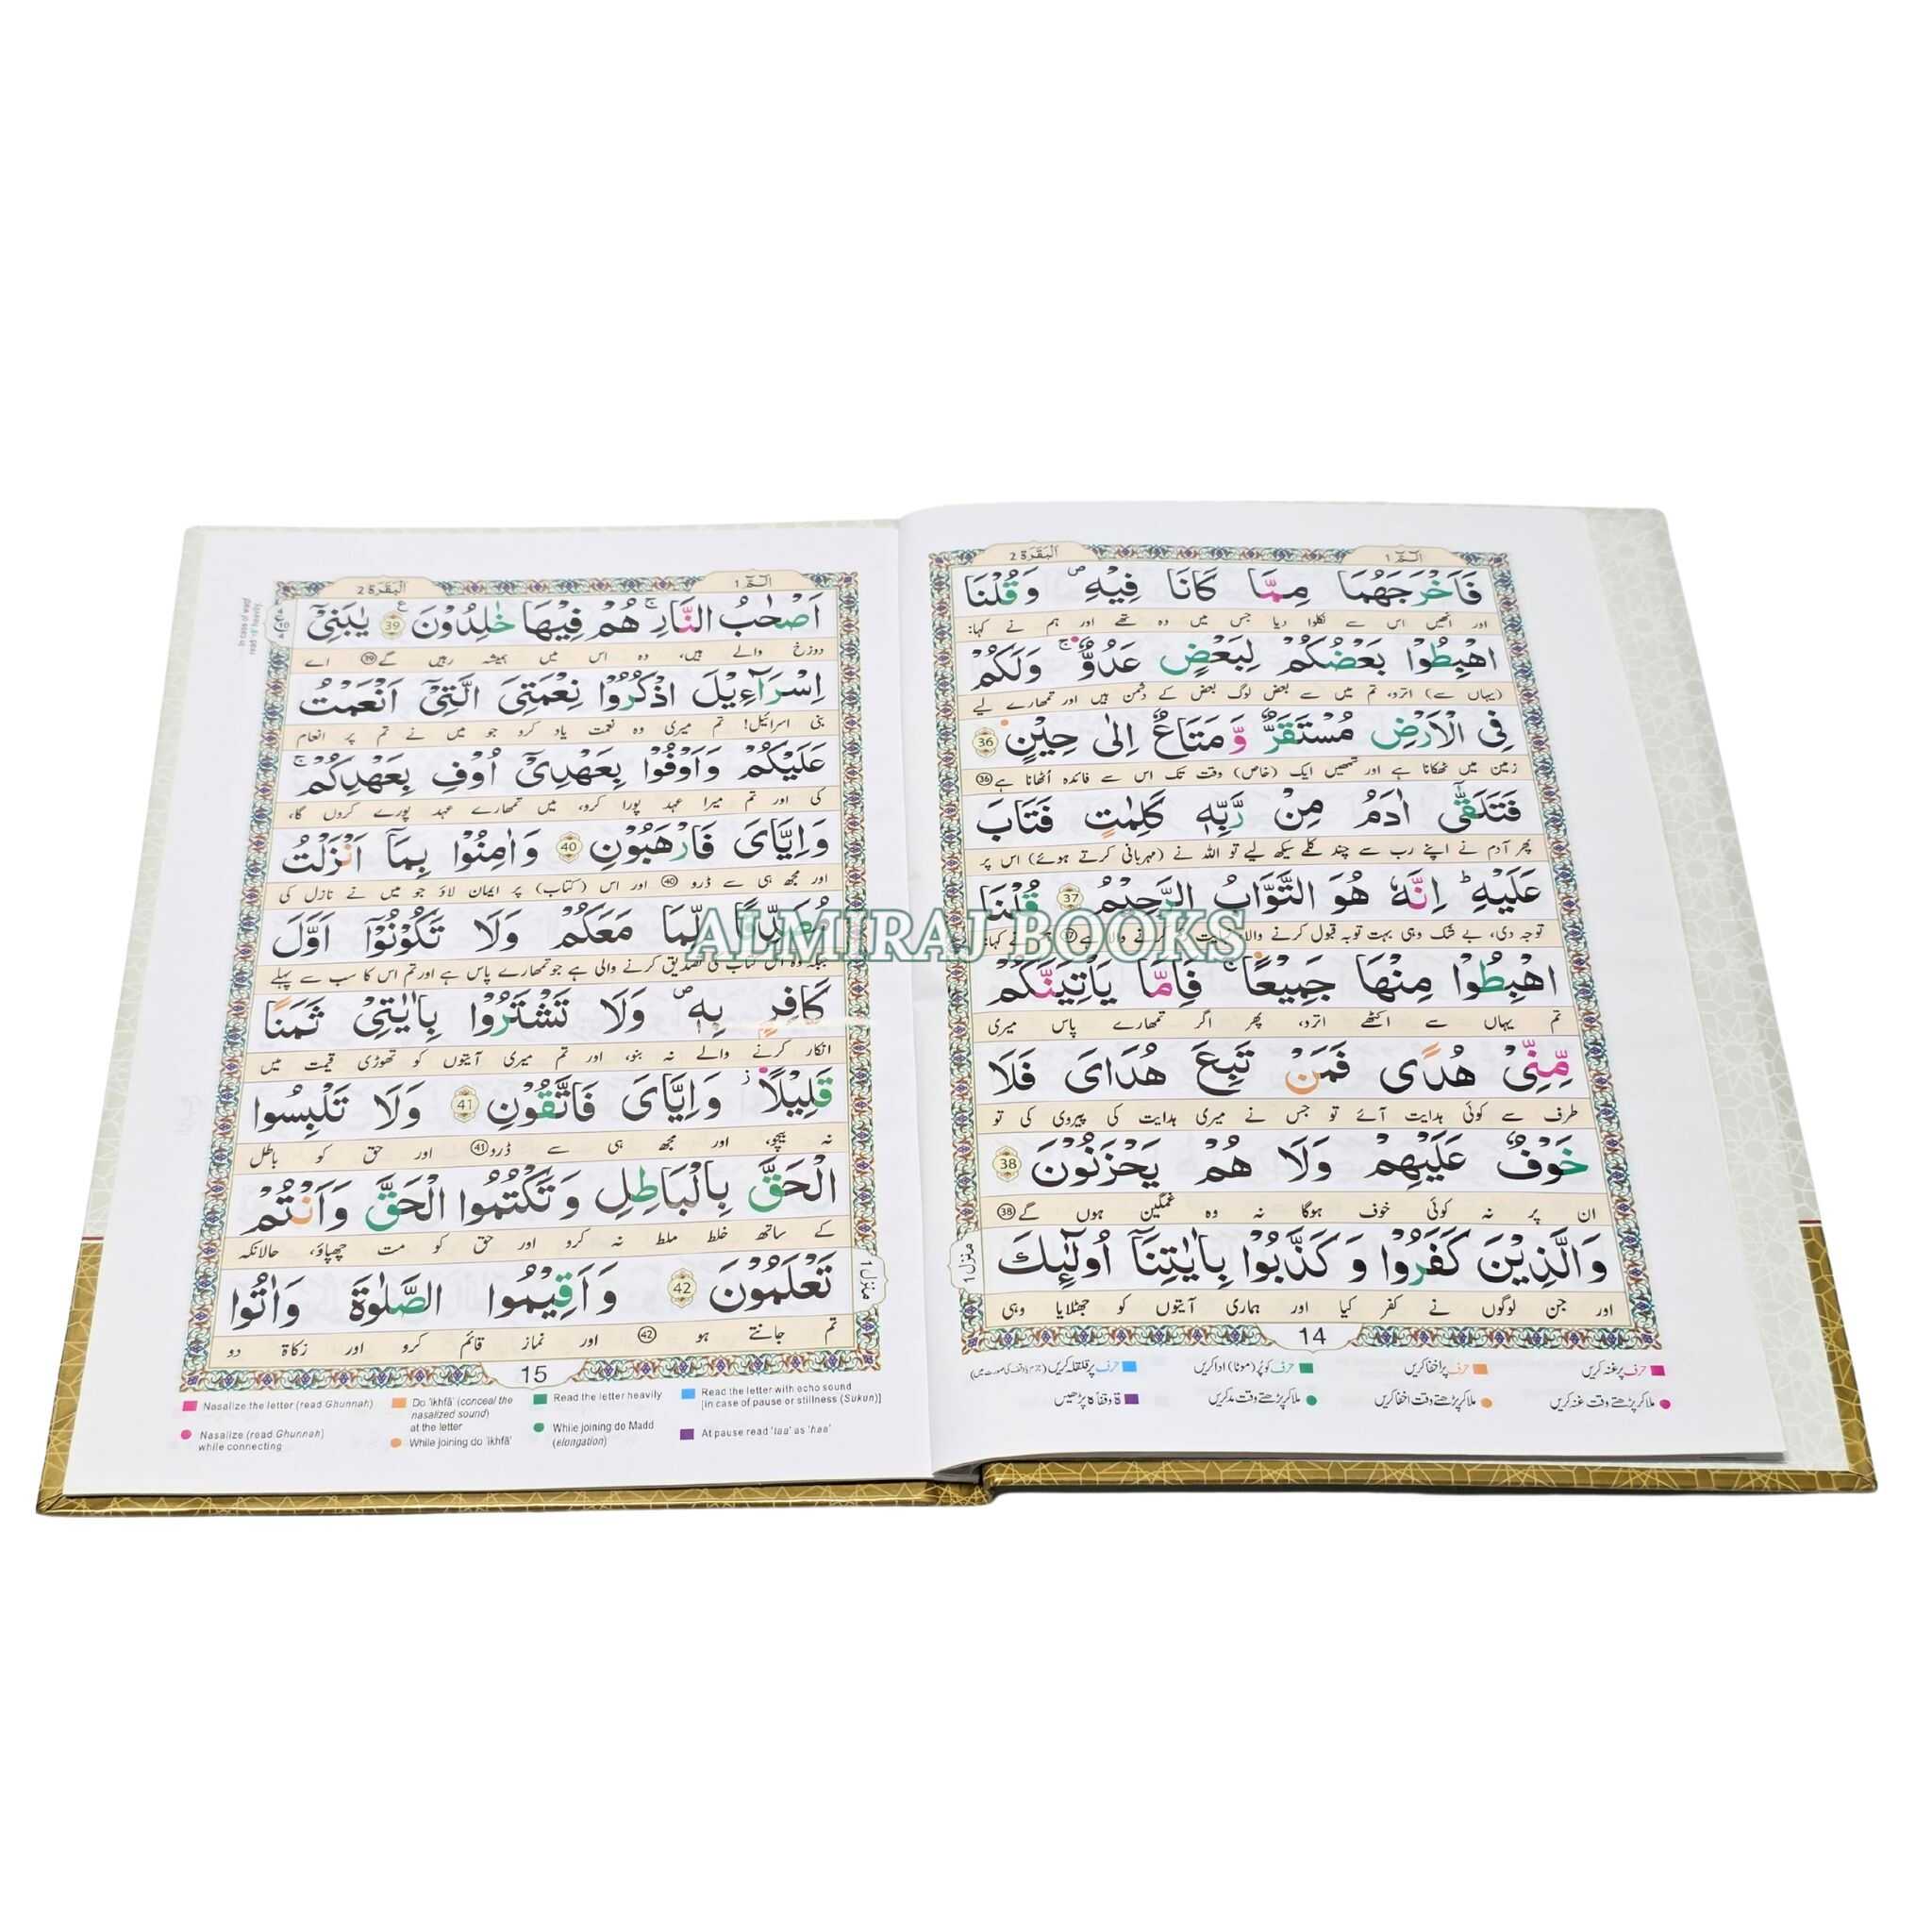 الٓـمّٓ 1
اَلْبَقَرَة 2
فَاَخْرَجَهُمَا مِمَّا كَانَا فِيْهِ ۪ وَقُلْنَا
اور انھیں اس سے نکلوا دیا جس میں وہ تھے اور ہم نے کہا:
اهْبِطُوْا بَعْضُكُمْ لِبَعْضٍ عَدُوٌّ ۚ وَلَكُمْ
(یہاں سے) اترو، تم میں سے بعض لوگ بعض کے دشمن ہیں اور تمھارے لیے
فِى الْاَرْضِ مُسْتَقَرٌّ وَّمَتَاعٌ اِلٰى حِيْنٍ 36
زمین میں ٹھکانا ہے اور تمھیں ایک (خاص) وقت تک اس سے فائدہ اُٹھانا ہے 36
فَتَلَقّٰٓى اٰدَمُ مِنْ رَّبِّهٖ كَلِمٰتٍ فَتَابَ
پھر آدم نے اپنے رب سے چند کلمے سیکھ لیے تو اللہ نے (مہربانی کرتے ہوئے) اس پر
عَلَيْهِ ؕ اِنَّهٗ هُوَ التَّوَّابُ الرَّحِيْمُ 37 قُلْنَا
توجہ دی، بے شک وہی بہت توبہ قبول کرنے والا کرنے والا ہے 37 نے کہا:
اهْبِطُوْا مِنْهَا جَمِيْعًا ۚ فَاِمَّا يَاْتِيَنَّكُمْ
تم یہاں سے اکٹھے اترو، پھر اگر تمھارے پاس میری
مِّنِّىْ هُدًى فَمَنْ تَبِعَ هُدَاىَ فَلَا
طرف سے کوئی ہدایت آئے تو جس نے میری ہدایت کی پیروی کی تو
خَوْفٌ عَلَيْهِمْ وَلَا هُمْ يَحْزَنُوْنَ 38
ان پر نہ کوئی خوف ہوگا نہ وہ غمگین ہوں گے 38
وَالَّذِيْنَ كَفَرُوْا وَكَذَّبُوْا بِاٰيٰتِنَآ اُولٰٓئِكَ
اور جن لوگوں نے کفر کیا اور ہماری آیتوں کو جھٹلایا وہی
منزل 1
14
حرف پر غنہ کریں
حرف پر اخفا کریں
حرف کو پُر (موٹا) ادا کریں
حرف پر قلقلہ کریں (جزم یا وقف کی صورت میں)
ملا کر پڑھتے وقت غنہ کریں
ملا کر پڑھتے وقت اخفا کریں
ملا کر پڑھتے وقت مد کریں
ۃ وقفا کا پڑھیں
الٓـمّٓ 1
اَلْبَقَرَة 2
اَصْحٰبُ النَّارِ ۚ هُمْ فِيْهَا خٰلِدُوْنَ 39 يٰبَنِىْٓ
دوزخ والے ہیں، وہ اس میں ہمیشہ رہیں گے 39 اے
اِسْرَآءِيْلَ اذْكُرُوْا نِعْمَتِىَ الَّتِىْٓ اَنْعَمْتُ
بنی اسرائیل! تم میری وہ نعمت یاد کرو جو میں نے تم پر انعام
عَلَيْكُمْ وَاَوْفُوْا بِعَهْدِىْٓ اُوْفِ بِعَهْدِكُمْ ۚ
کی اور تم میرا عہد پورا کرو، میں تمھارے عہد پورے کروں گا،
وَاِيَّاىَ فَارْهَبُوْنِ 40 وَاٰمِنُوْا بِمَآ اَنْزَلْتُ
اور مجھ ہی سے ڈرو 40 اور اس (کتاب) پر ایمان لاؤ جو میں نے نازل کی
مُصَدِّقًا لِّمَا مَعَكُمْ وَلَا تَكُوْنُوْٓا اَوَّلَ
جبکہ وہ اس کتاب کی تصدیق کرنے والی ہے جو تمھارے پاس ہے اور تم اس کا سب سے پہلے
كَافِرٍ بِهٖ ۪ وَلَا تَشْتَرُوْا بِاٰيٰتِىْ ثَمَنًا
انکار کرنے والے نہ بنو، اور تم میری آیتوں کو تھوڑی قیمت میں
قَلِيْلًا ۫ وَاِيَّاىَ فَاتَّقُوْنِ 41 وَلَا تَلْبِسُوا
نہ بیچو، اور مجھ ہی سے ڈرو 41 اور حق کو باطل
الْحَقَّ بِالْبَاطِلِ وَتَكْتُمُوا الْحَقَّ وَاَنْتُمْ
کے ساتھ خلط ملط نہ کرو اور حق کو مت چھپاؤ، حالانکہ
تَعْلَمُوْنَ 42 وَاَقِيْمُوا الصَّلٰوةَ وَاٰتُوا
تم جانتے ہو 42 اور نماز قائم کرو اور زکاۃ دو
منزل 1
15
Nasalize the letter (read Ghunnah)
Do 'ikhfā' (conceal the
nasalized sound)
at the letter
Read the letter heavily
Read the letter with echo sound
[in case of pause or stillness (Sukun)]
Nasalize (read Ghunnah)
while connecting
While joining do 'ikhfā'
While joining do Madd
(elongation)
At pause read 'taa' as 'haa'
ALMIRAJ BOOKS